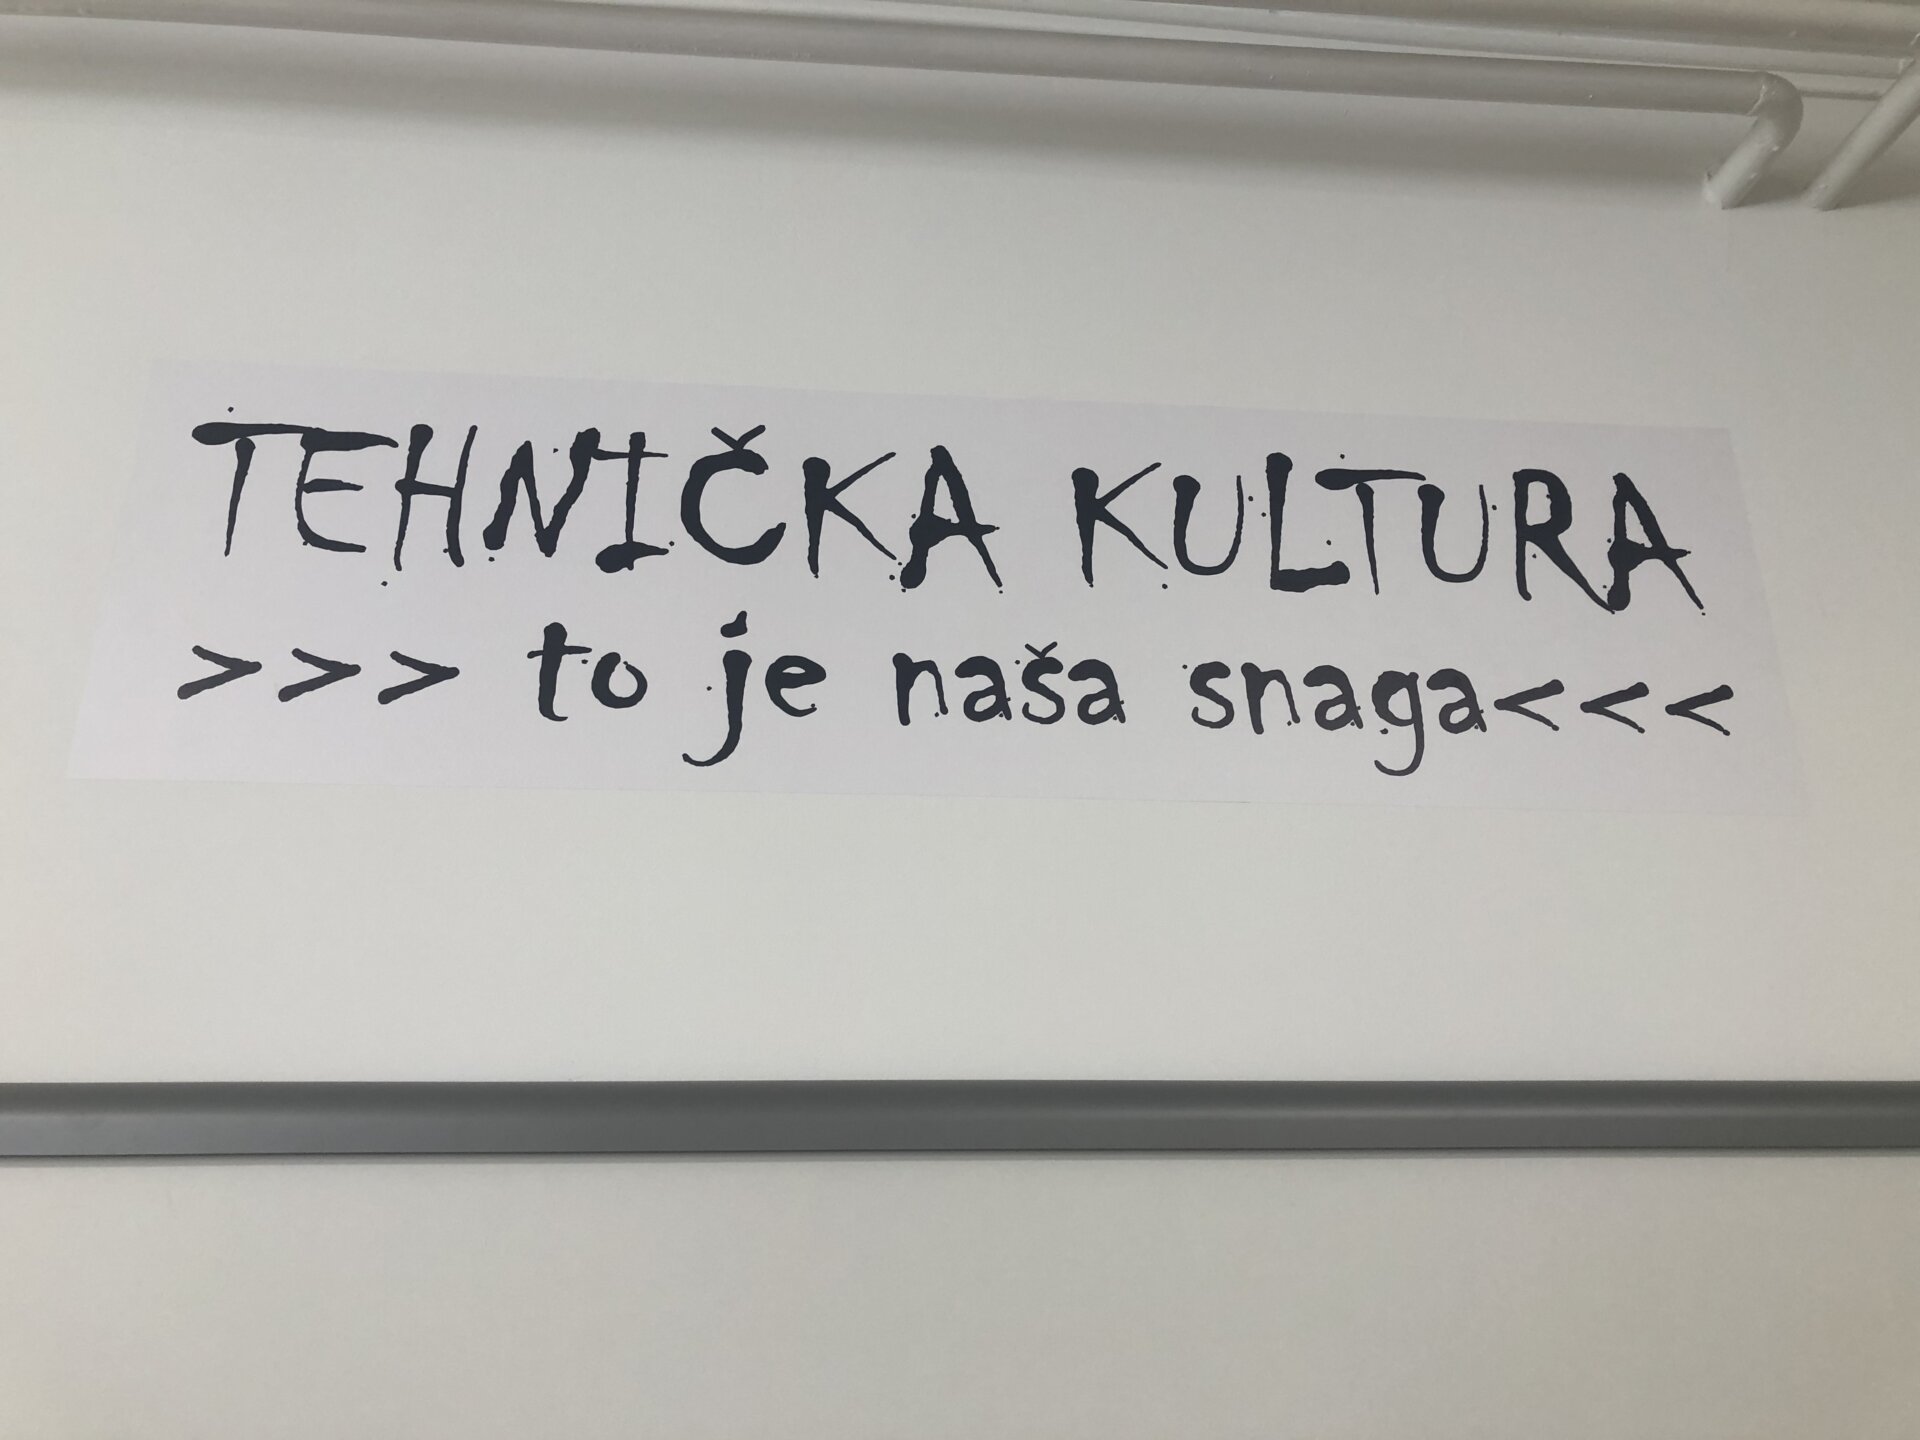 TEHNIČKA KULTURA
>>> to je naša snaga<<<